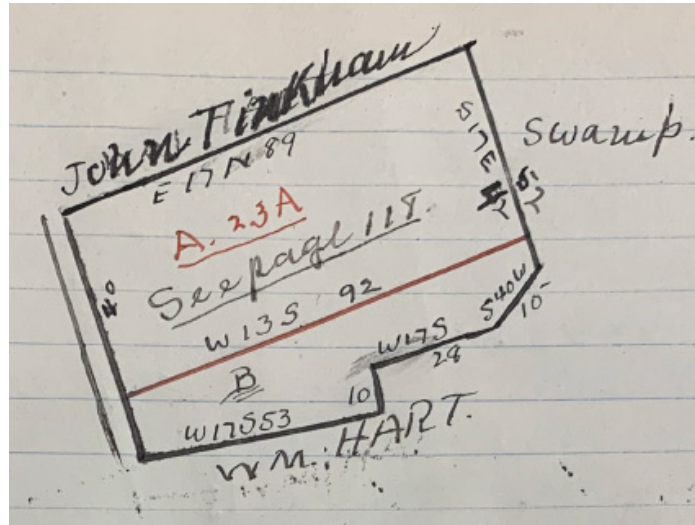 John Tinkham
E 17 N 89
Swamp.
S 17 E
52
A. 23A
See page 118.
40
W 13 S 92
S40W
10
W17S
28
B
10
W17S53
WM. HART.